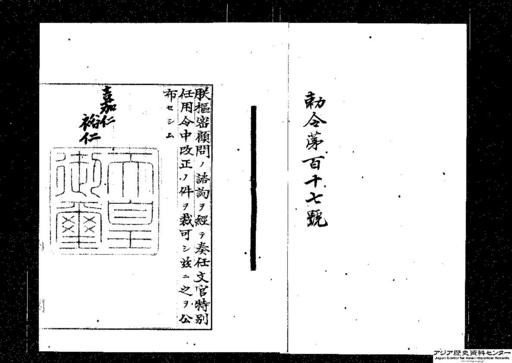 勅令第百十七號
朕樞密顧問ノ諮詢ヲ經テ奏任文官特別
任用令中改正ノ件ヲ裁可シ茲ニ之ヲ公
布セシム
嘉仁
裕仁
天皇
御璽
アジア歴史資料センター
Japan Center for Asian Historical Records